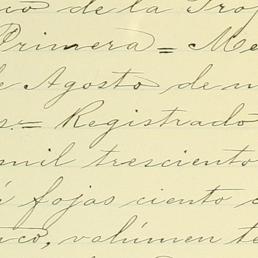 ico de la Prop
Primera = Me
e Agosto de m
s. = Registrado
mil tresciento
á fojas ciento c
nco, valúmen te